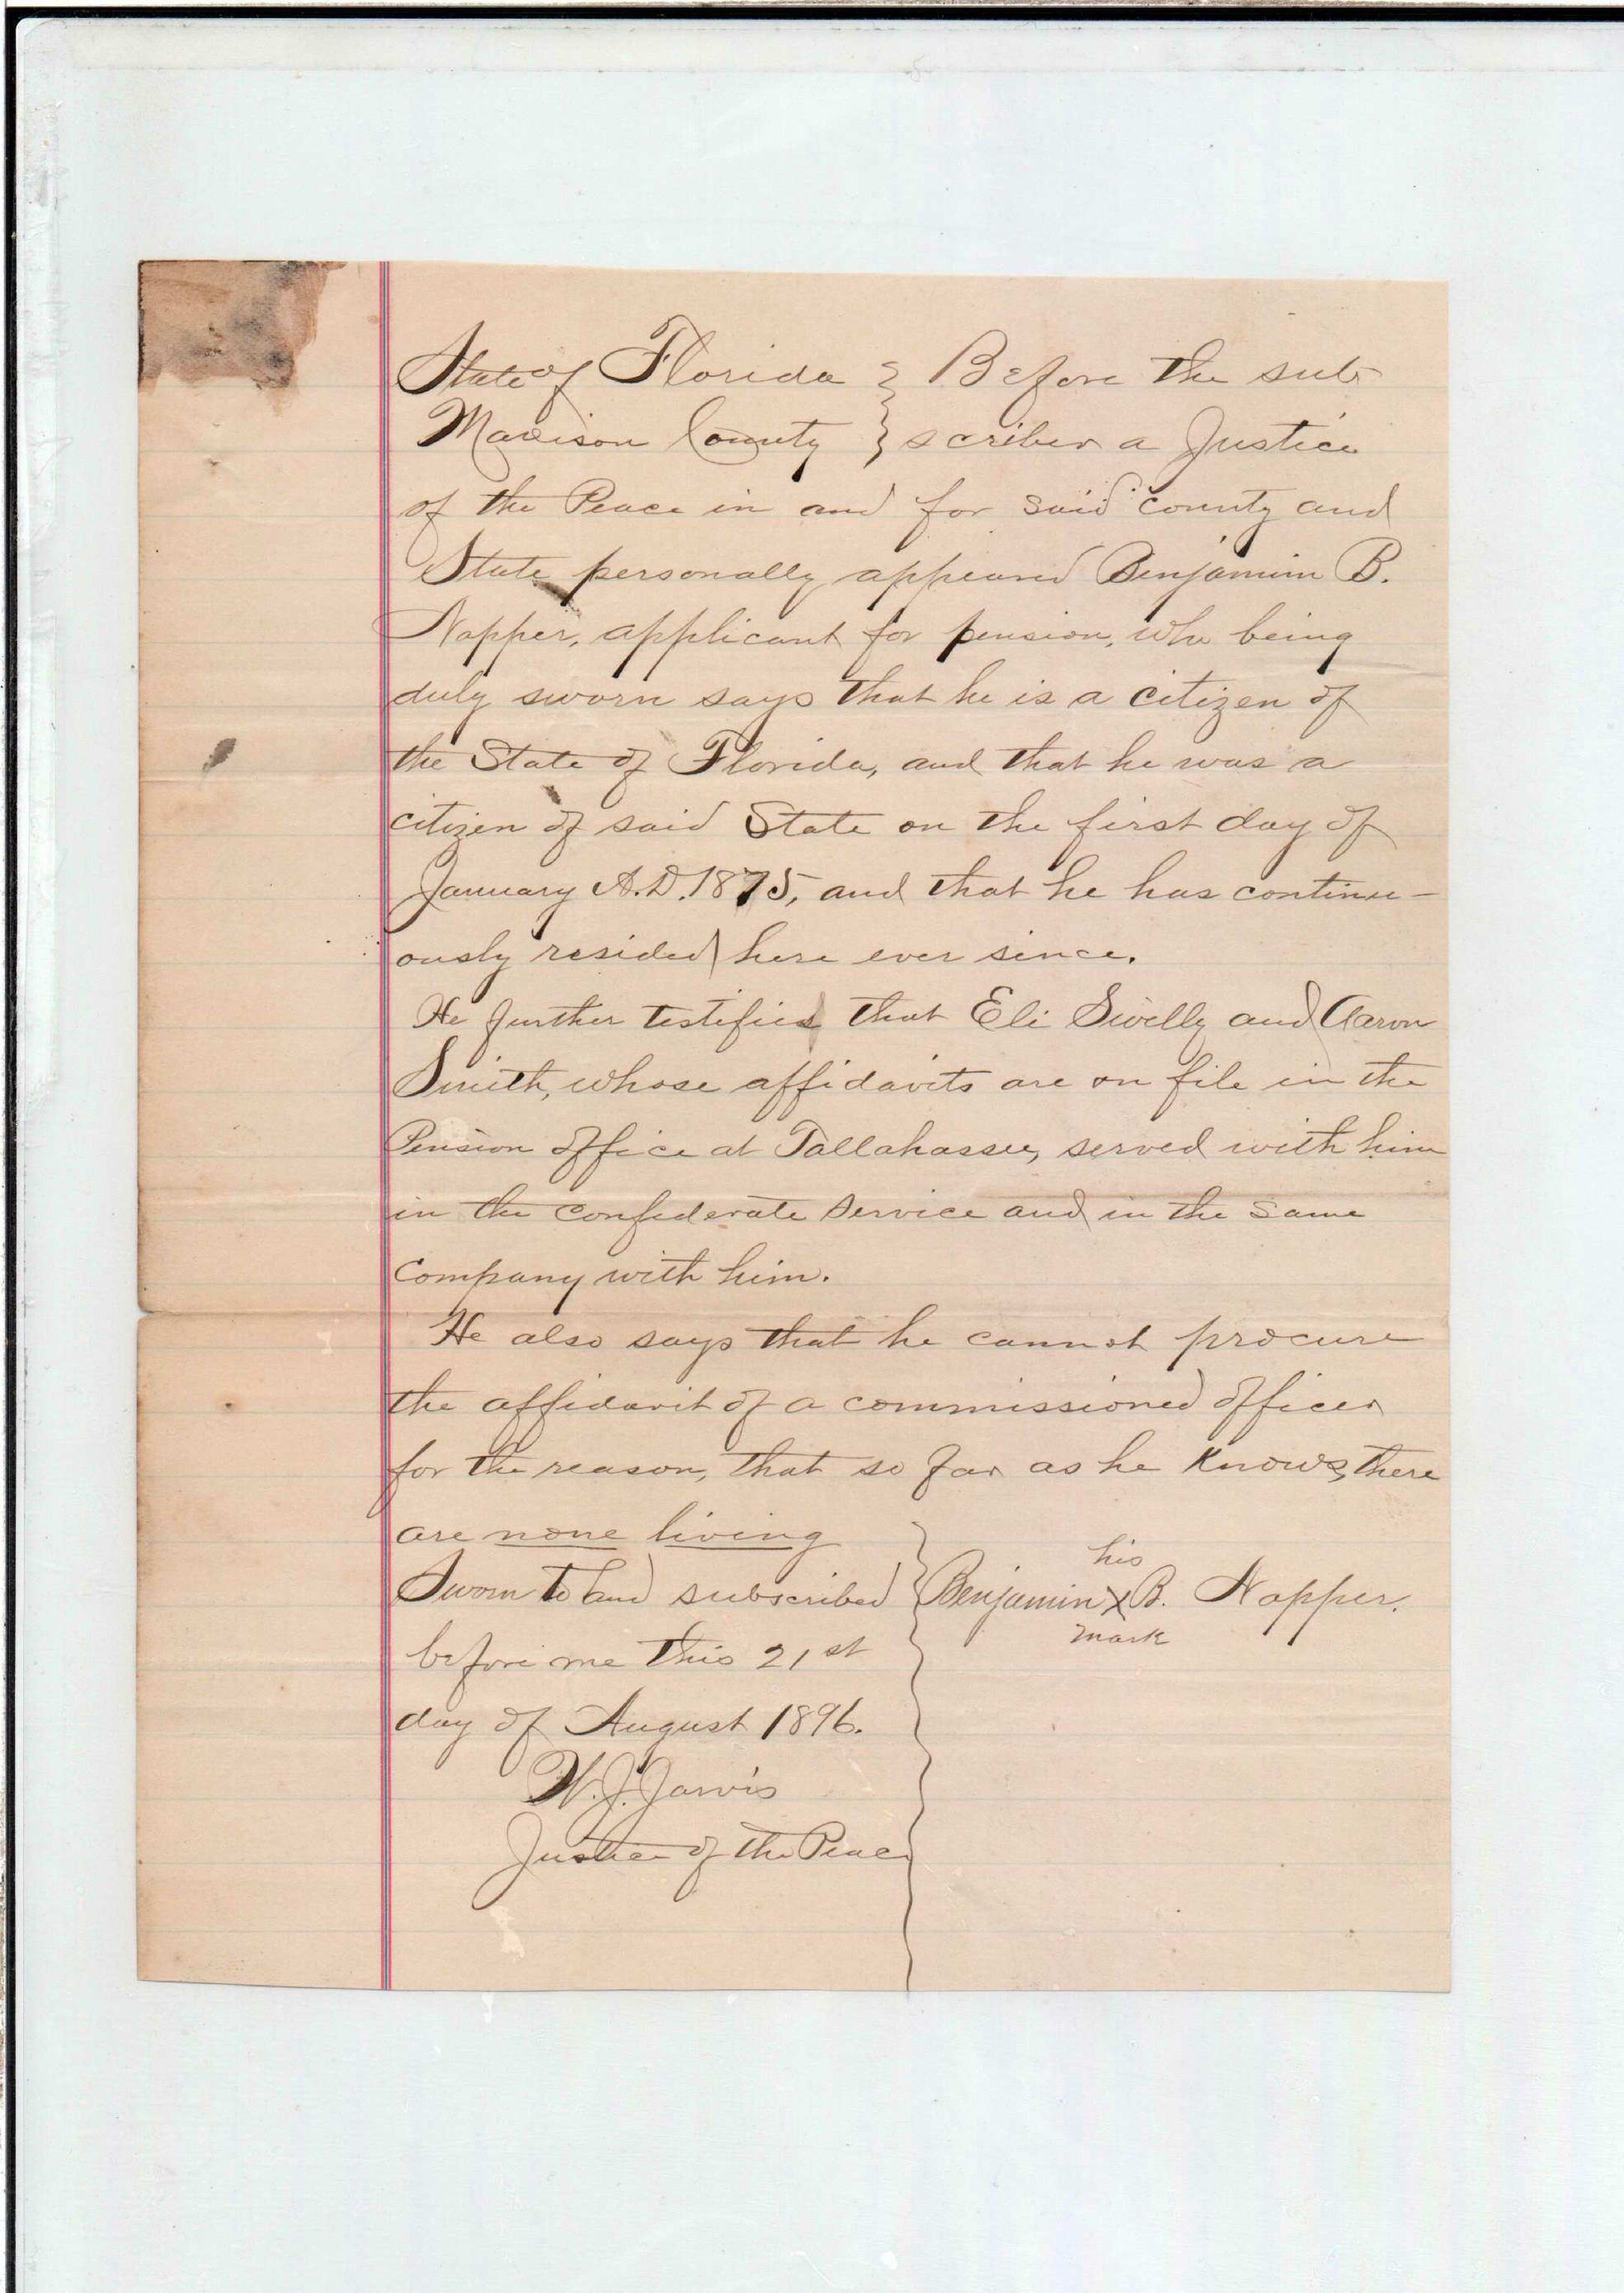 State of Florida } Before the sub-
Madison County } scriber a Justice
of the Peace in and for said county and
State personally appeared Benjamin B.
Napper, applicant for pension, who being
duly sworn says that he is a citizen of
the State of Florida, and that he was a
citizen of said State on the first day of
January A.D. 1875, and that he has continu-
ously resided here ever since.
He further testified that Eli Swilly and Aaron
Smith, whose affidavits are on file in the
Pension office at Tallahassee, served with him
in the confederate service and in the same
Company with him.
He also says that he cannot procure
the affidavit of a commissioned officer
for the reason, that so far as he knows, there
are none living
Sworn to and subscribed
before me this 21st
day of August 1896.
W. J. Jarvis
Justice of the Peace
his
Benjamin X B. Napper.
mark